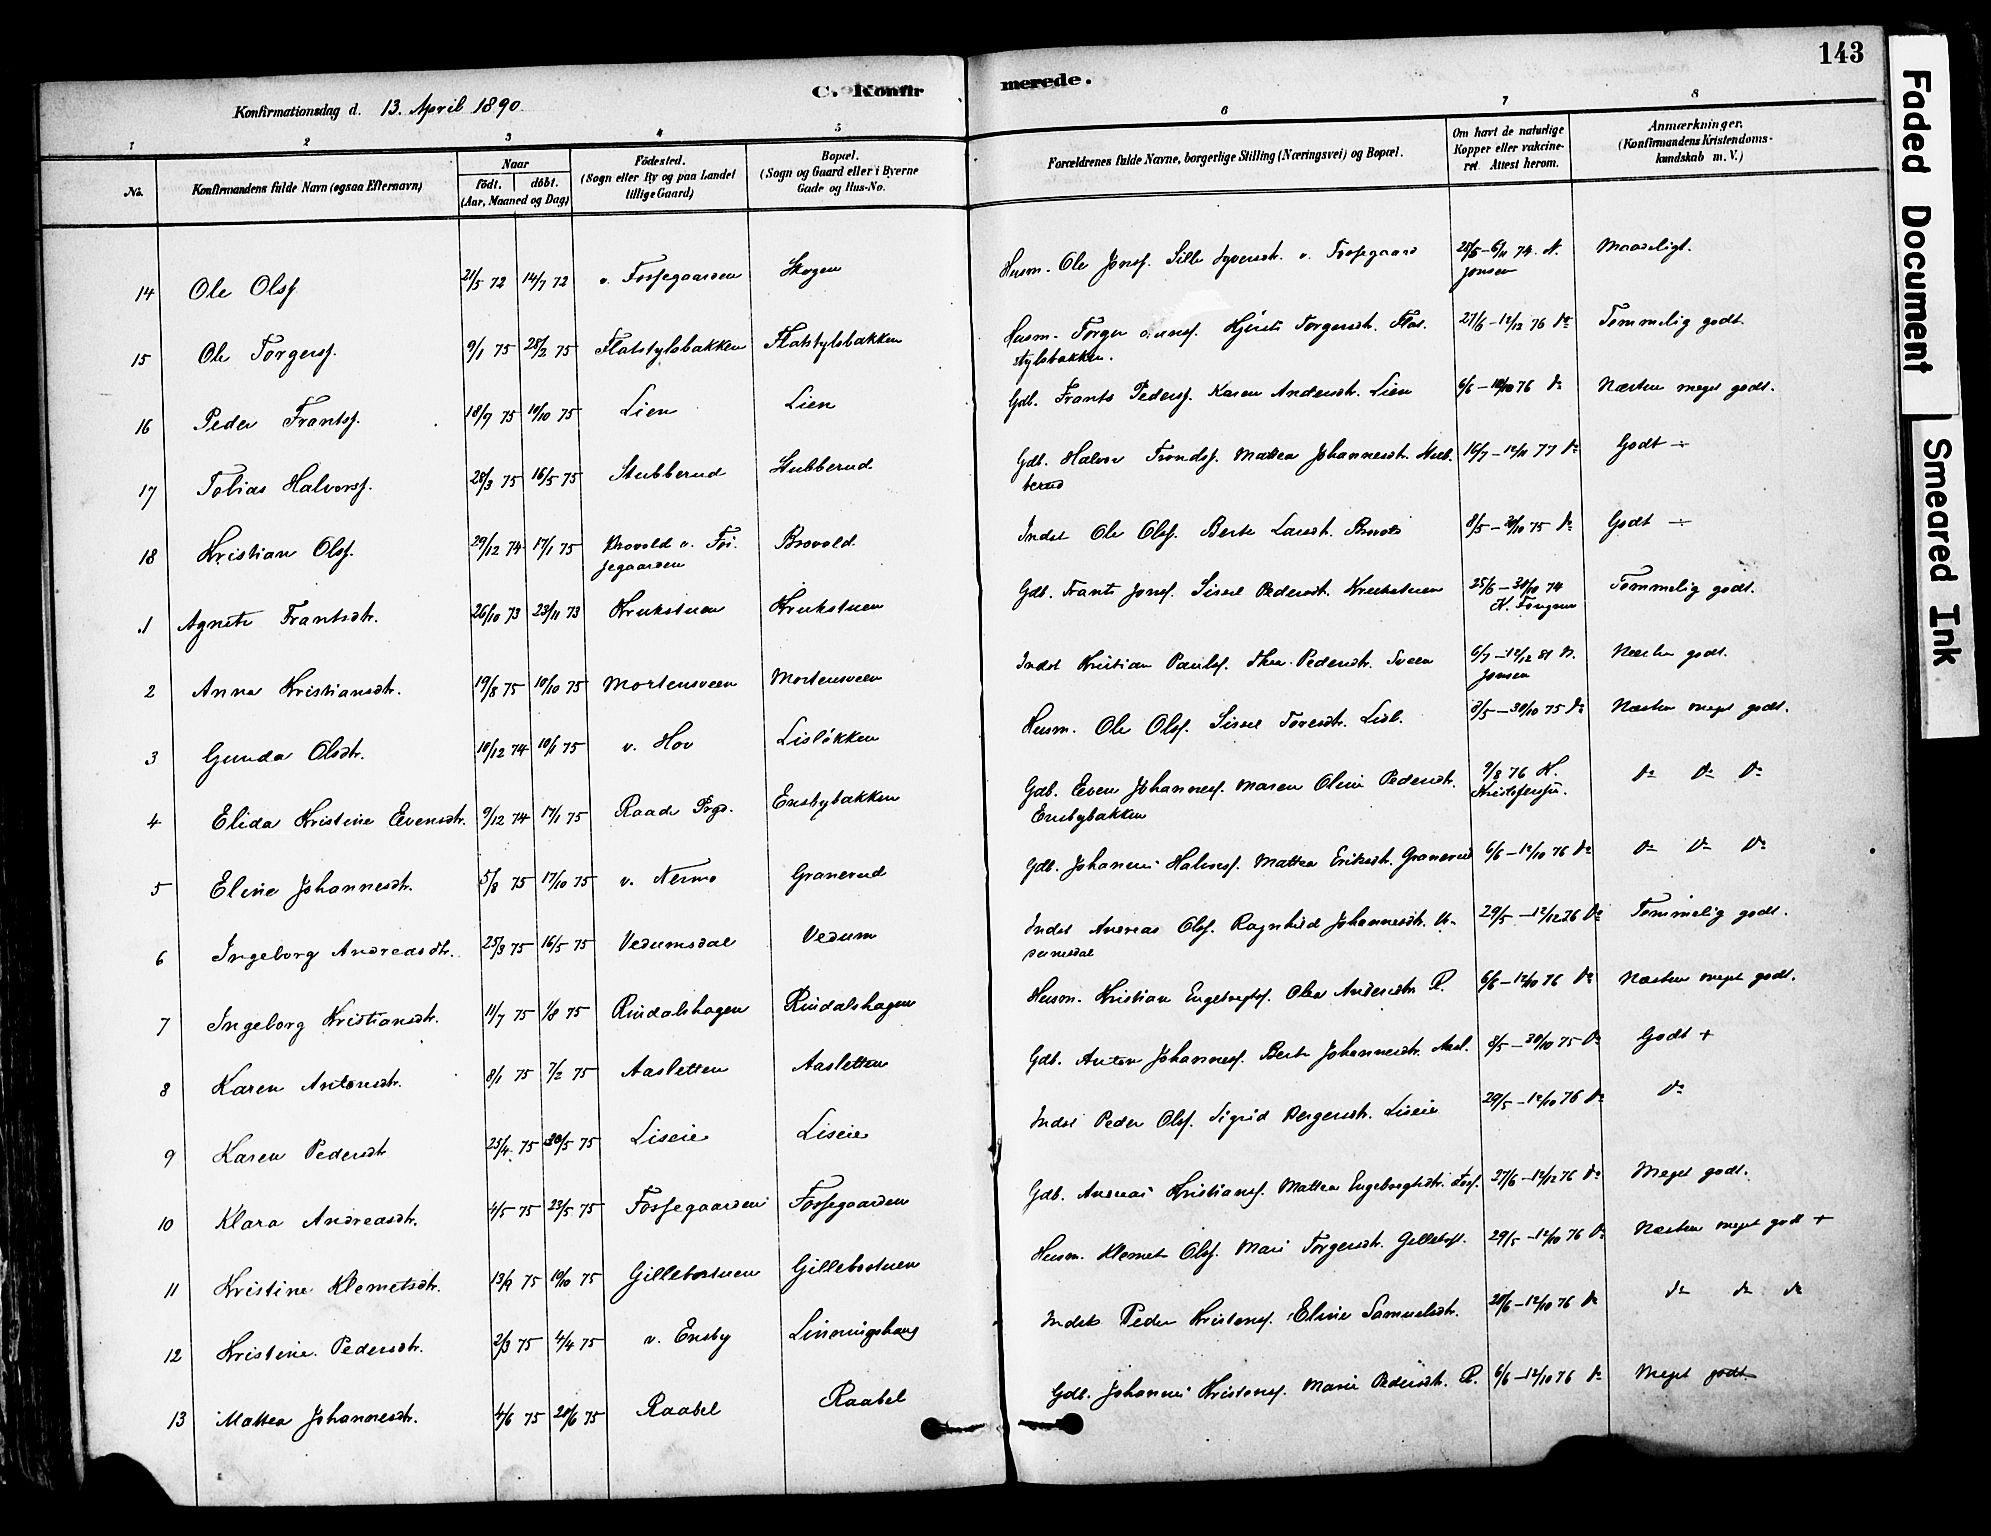 143
C. Konfirmerede.
Konfirmationsdag d. 13. April 1890.
1 2 3 4 5 6 7 8
No. Konfirmandens fulde Navn (ogsaa Efternavn) Naar født. døbt. (Aar, Maaned og Dag) Fødested. (Sogn eller By og paa Landet tillige Gaard) Bopæl. (Sogn og Gaard eller i Byerne Gade og Hus-No. Forældrenes fulde Navne, borgerlige Stilling (Næringsvei) og Bopæl. Om havt de naturlige Kopper eller vakcineret. Attest herom. Anmærkninger. (Konfirmandens Kristendomskundskab m. V.)
14 Ole Olsf. 21/5 72 14/7 72 v. Fossegaarden Skogen Husm. Ole Jonsf. Sille Syversdt. v. Fossegaard 28/5 – 6/11 74. N. Jonsen Maadeligt.
15 Ole Torgersf. 9/1 75 28/2 75 Flatstylsbakken Flatstylsbakken Husm. Torger Torgersdt. Flatstylsbakken. 27/6 – 12/12 76 do Temmelig godt.
16 Peder Frantsf. 18/7 75 10/10 75 Lien Lien Gdb. Frants Pedersf. Karen Andersdt. Lien 6/6 – 12/10 76 do Næsten meget godt.
17 Tobias Halvorsf. 28/3 75 16/5 75 Stubberud Stubberud Gdb. Halvor Trondsf. Mattea Johannesdt. Stubberud 16/7 – 12/11 77 do Godt ÷
18 Kristian Olsf. 29/12 74 17/1 75 Brovold v. Fossegaarden Brovold Indst Ole Olsf. Berte Larsdt. 8/5 – 30/10 75 do Godt ÷
1 Agnete Frantsdtr. 26/10 73 23/11 73 Krukstuen Krukstuen Gdb. Frants Jonsf. Sissel Pedersdt. Krukstuen 25/6 – 30/10 74 Temmelig godt.
2 Anna Kristiansdtr. 19/8 75 10/10 75 Mortensveen Mortensveen Indst Kristian Paulsf. Pedersdt. Sveen 6/7 – 12/12 81 N. Jonsen Næsten godt.
3 Gunda Olsdtr. 10/12 74 10/1 75 v. Hov Lisløkken Husm. Ole Olsf. Sissel Toresdt. Lisl. 8/5 – 30/10 75 do Næsten meget godt.
4 Elida Kristine Evensdtr. 9/12 74 17/1 75 Raade Prgd. Ensbybakken Gdb. Even Johannesf. Maren Oline Pedersdt. Ensbybakken 9/8 76 K. do do do
5 Eline Johannesdtr. 5/8 75 17/10 75 v. Nermo Granerud Gdb. Johannes Halvorsf. Mattea Eriksdt. Granerud 6/6 – 12/10 76 do do do do
6 Ingeborg Andreasdtr. 25/3 75 16/5 75 Vedumsdal Vedum Indst Andreas Olsf. Ragnhild Johannesdt. Vedumsdal 29/5 – 12/12 76 do Temmelig godt.
7 Ingeborg Kristiansdtr. 11/7 75 1/8 75 Rindalshagen Rindalshagen Husm. Kristian Engebregtsf. Olea Andersdt. R. 6/6 – 12/10 76 do Næsten meget godt.
8 Karen Antonsdtr. 8/1 75 7/2 75 Aasletten Aasletten Gdb. Anton Johannesf. Berte Johannesdt. Aasl. 8/5 – 30/10 75 do Godt +
9 Karen Pedersdt 25/4 75 30/5 75 Liseie Liseie Indst Peder Olsf. Sigrid Bergersdt. Liseie 29/5 – 12/10 76 do do
10 Klara Andreasdtr. 4/5 75 23/5 75 Fossegaarden Fossegaarden Gdb. Andreas Kristiansf. Mattea Engebregtsdt. Foss. 27/6 – 12/12 76 do Meget godt.
11 Kristine Klemetsdtr. 13/9 75 10/10 75 Gillebostuen Gillebostuen Husm. Klemet Olsf. Mari Torgersdt. Gillebost. 29/5 – 12/10 76 do Næsten meget godt +
12 Kristine Pedersdtr. 2/3 75 4/4 75 v. Ensby Linningshaug Indst Peder Kristensf. Eline Samuelsdt. 28/6 – 12/10 76 do do do do
13 Mattea Johannesdtr. 4/6 75 20/6 75 Raabel Raabel Gdb. Johannes Kristensf. Marie Pedersdt. R. 6/6 – 12/10 76 do Meget godt
Faded Document
Smeared Ink